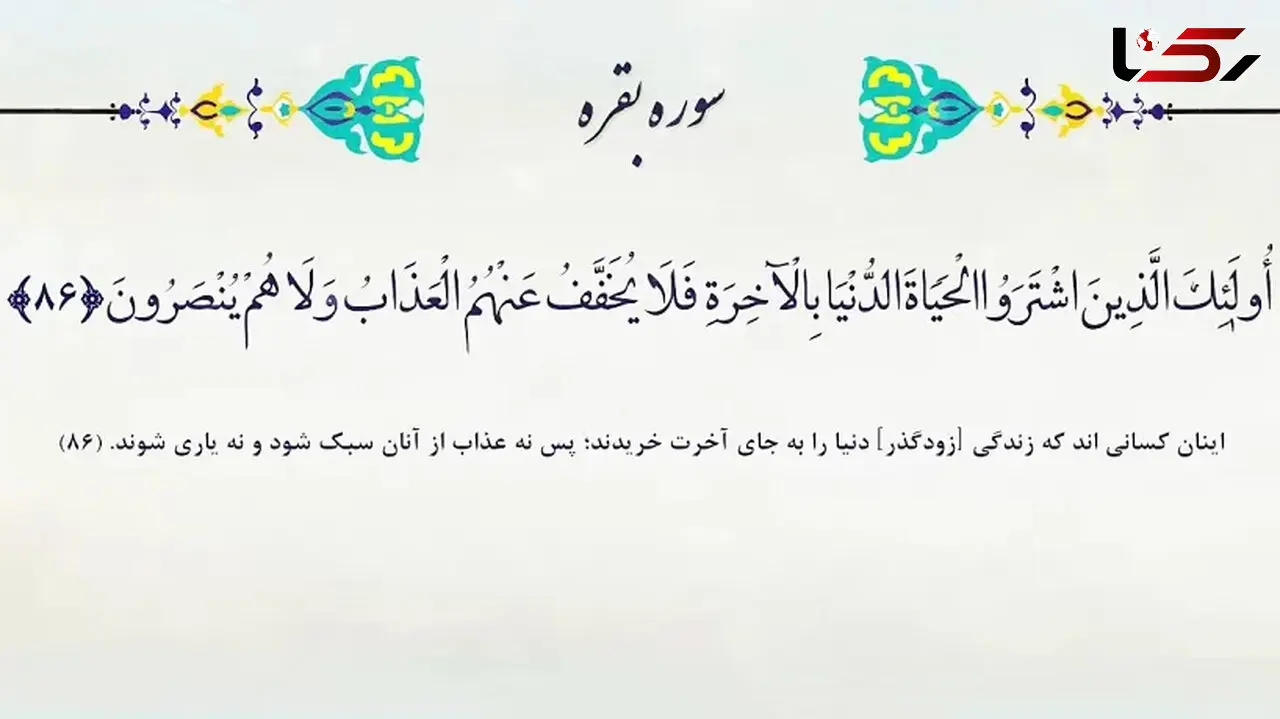 رکنا
سوره بقره
أُولَئِكَ الَّذِينَ اشْتَرَوُا الْحَيَاةَ الدُّنْيَا بِالْآخِرَةِ فَلَا يُخَفَّفُ عَنْهُمُ الْعَذَابُ وَلَا هُمْ يُنْصَرُونَ ﴿۸۶﴾
اینان کسانی اند که زندگی [زودگذر] دنیا را به جای آخرت خریدند؛ پس نه عذاب از آنان سبک شود و نه یاری شوند. (۸۶)